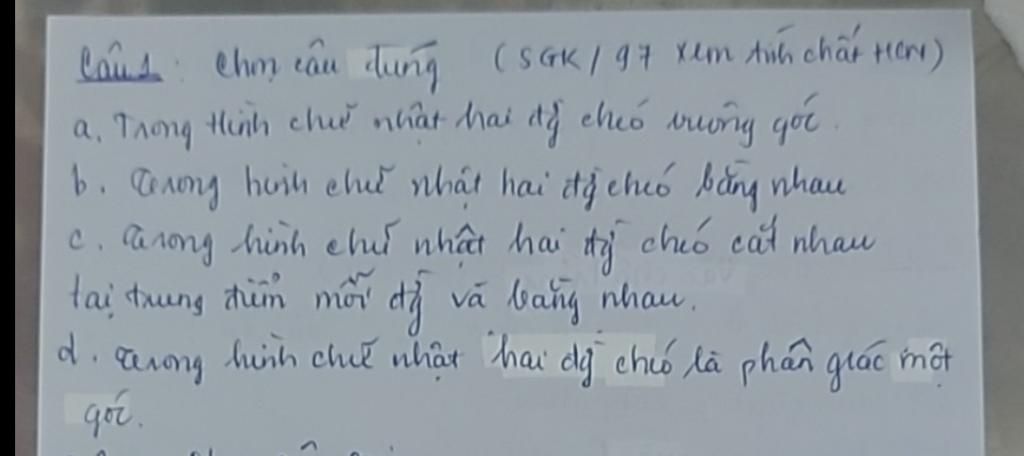 Câu 1: Chọn câu đúng (SGK/97 xem tính chất HCN)
a. Trong Hình chữ nhật hai đg chéo vuông góc.
b. Trong hình chữ nhật hai đg chéo bằng nhau
c. Trong hình chữ nhật hai đg chéo cắt nhau
tại trung điểm mỗi đg và bằng nhau.
d. Trong hình chữ nhật hai đg chéo là phân giác một
góc.